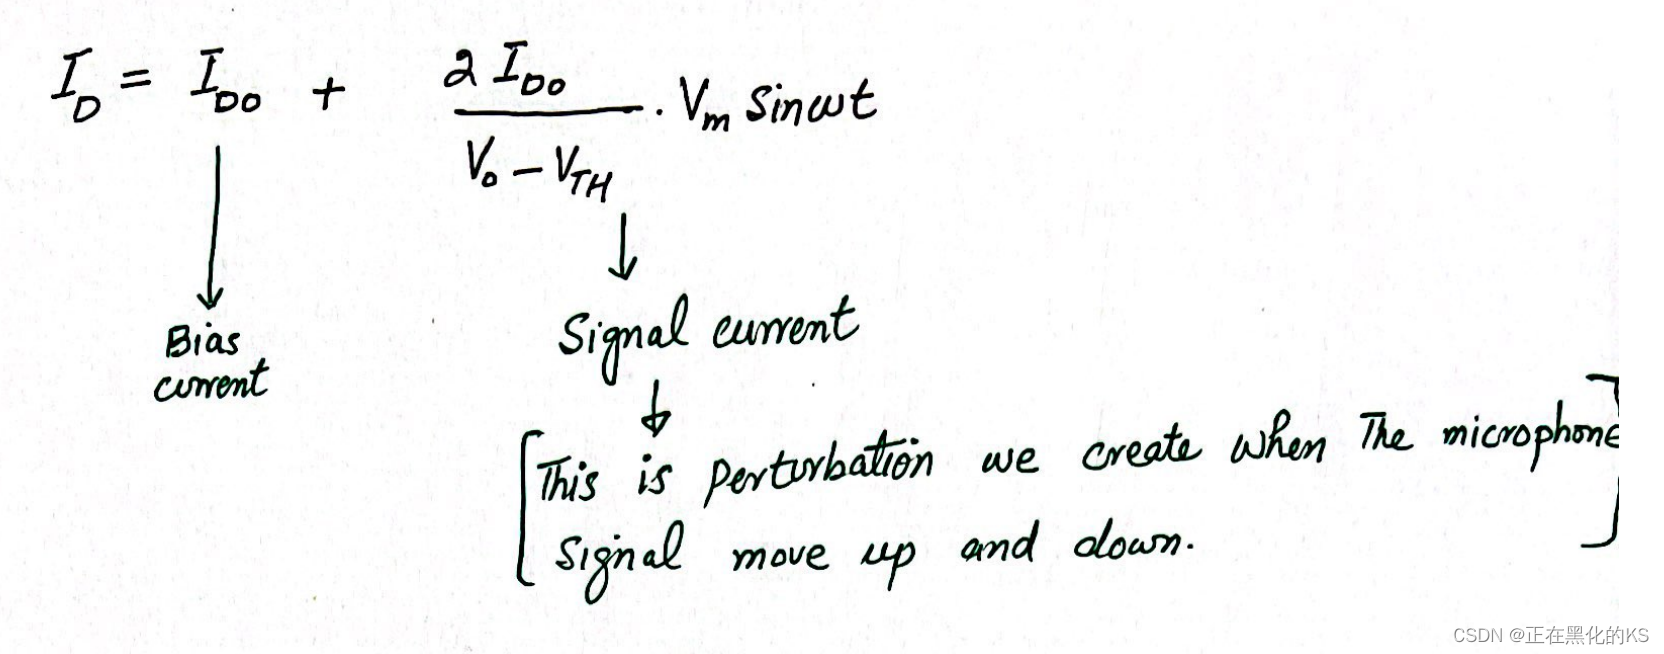 I_D = I_D0 + 2 I_D0 / (V_0 - V_TH) · V_m sinωt
Bias
current
Signal current
[This is perturbation we create when The microphone
signal move up and down.]
CSDN @正在黑化的KS